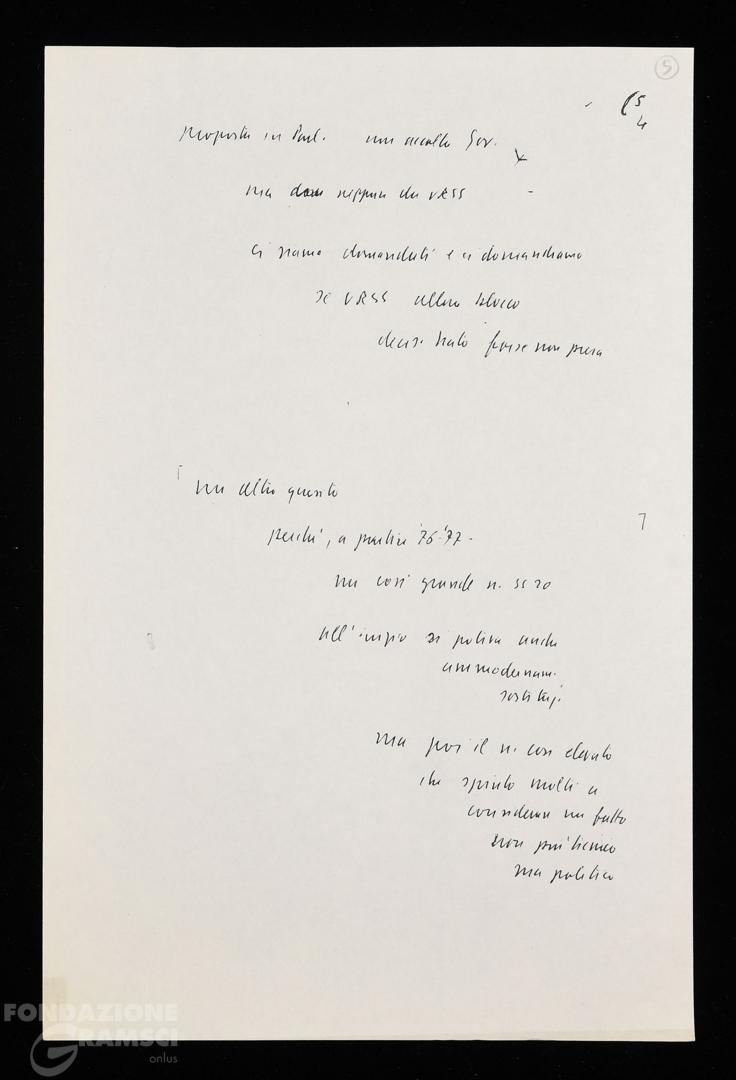 5
5
4
proposta in Parl. non accolta Gov.
ma neppure da URSS
ci siamo domandati e ci domandiamo
se URSS allora blocco
forse non presa
un altro quesito
perché, a partire '76-'77-
un così grande n. SS 20
all'inizio si poteva anche
ammodernam.
sostituz.
ma poi il n. così elevato
che spinto molti a
considerare un fatto
non più tecnico
ma politico
FONDAZIONE
GRAMSCI
onlus